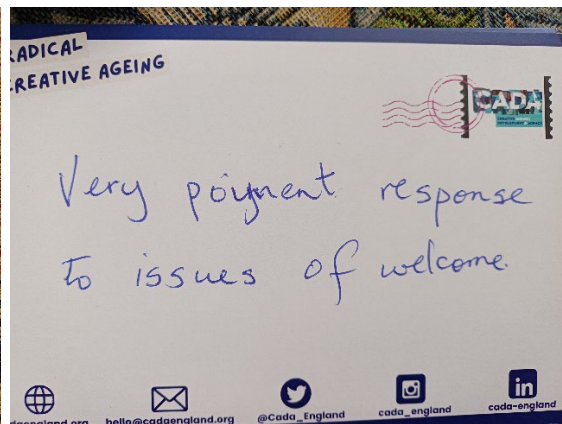 RADICAL
CREATIVE AGEING
CADA
Very poignent response
to issues of welcome.
hello@cadaengland.org
@Cada_England
cada_england
cada-england